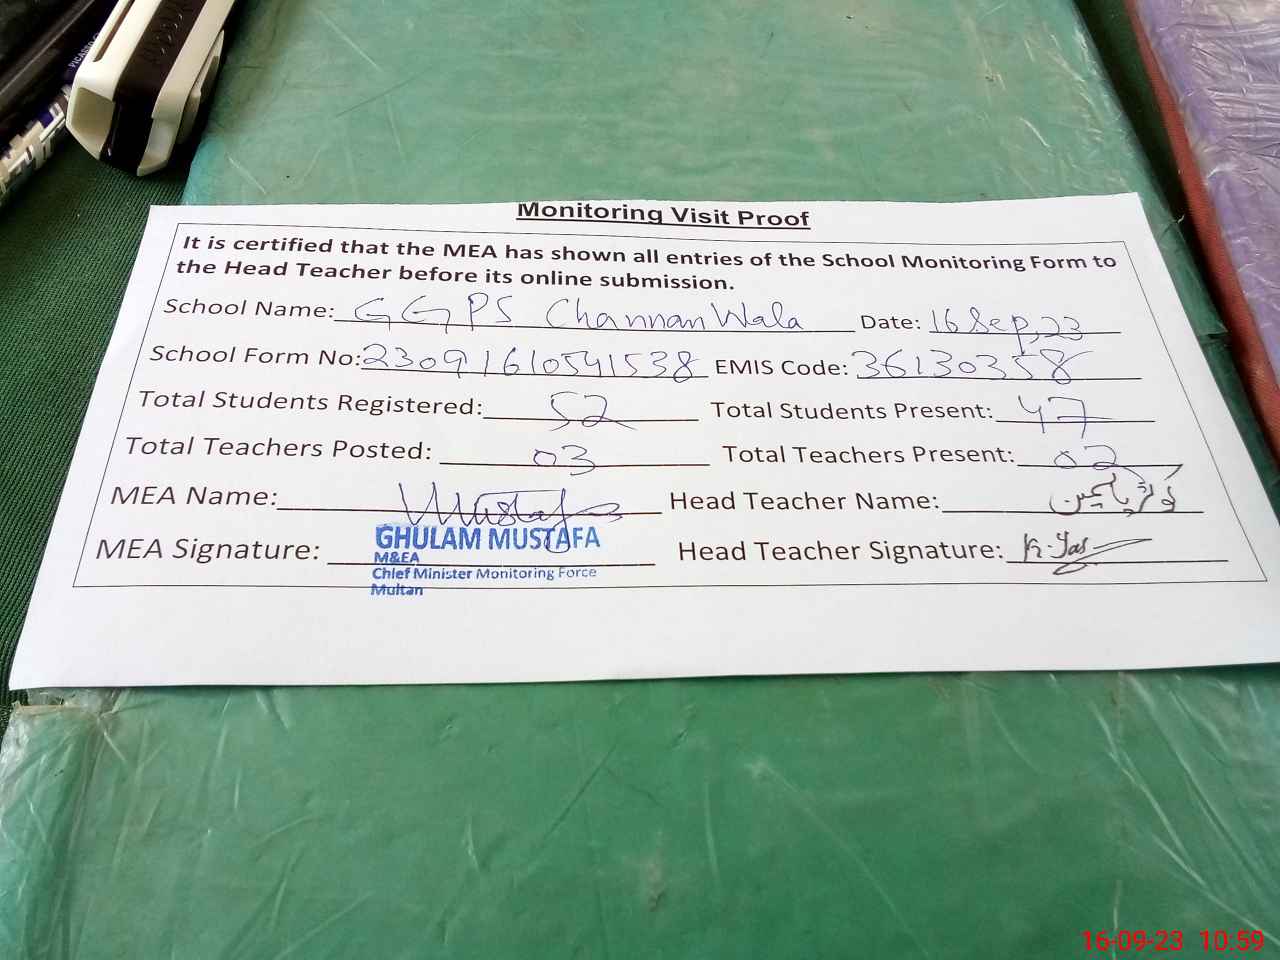 Monitoring Visit Proof
It is certified that the MEA has shown all entries of the School Monitoring Form to
the Head Teacher before its online submission.
School Name: GGPS Channan Wala Date: 16 Sep, 23
School Form No: 23091610541538 EMIS Code: 36130358
Total Students Registered: 52 Total Students Present: 47
Total Teachers Posted: 03 Total Teachers Present: 02
MEA Name: Mustafa Head Teacher Name: یاسمین
MEA Signature: Head Teacher Signature: K. Yas
GHULAM MUSTAFA
M&EA
Chief Minister Monitoring Force
Multan
16-09-23 10:59